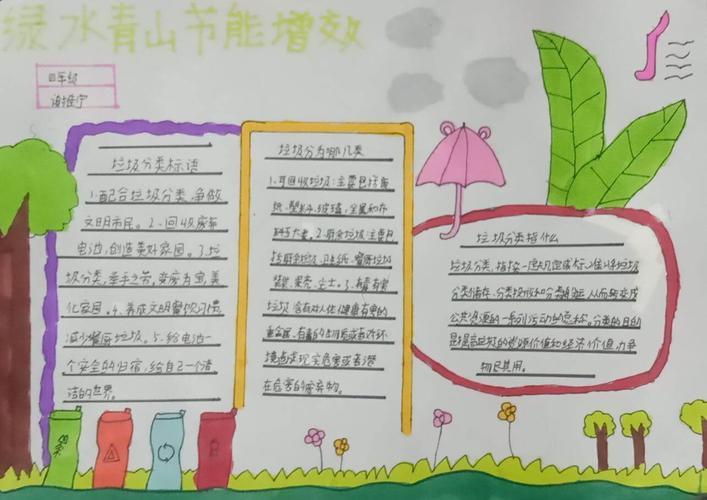 绿水青山节能增效
四年级
垃圾分类标语
1.配合垃圾分类,争做
文明市民。2.回收废弃
电池,创造美好家园。3.垃
圾分类,举手之劳,变废为宝,美
化家园。4.养成文明餐饮习惯
减少餐厨垃圾。5.给电池一
个安全的归宿,给自己一个清
洁的世界。
垃圾分为哪几类
1.可回收垃圾:主要包括废
纸,塑料,玻璃,金属和布
料五大类。2.厨余垃圾:主要包
括厨余垃圾,卫生纸,餐厨垃圾
果壳,尘土。3.有毒有害
垃圾 含有对人体健康有害的
重金属、有毒的物质或者对环
境造成现实危害或者潜
在危害的废弃物。
垃圾分类指什么
垃圾分类,指按一定规定或标准将垃圾
分类储存、分类投放和分类搬运,从而转变成
公共资源的一系列活动的总称。分类的目的
是提高垃圾的资源价值和经济价值,力争
物尽其用。